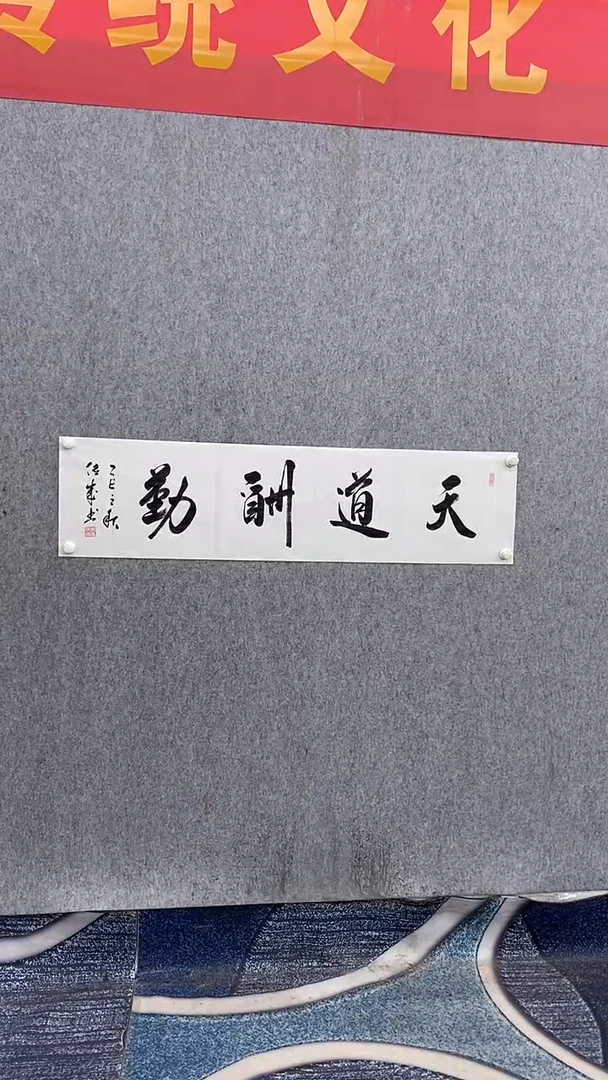 传统文化
天道酬勤
乙巳之秋